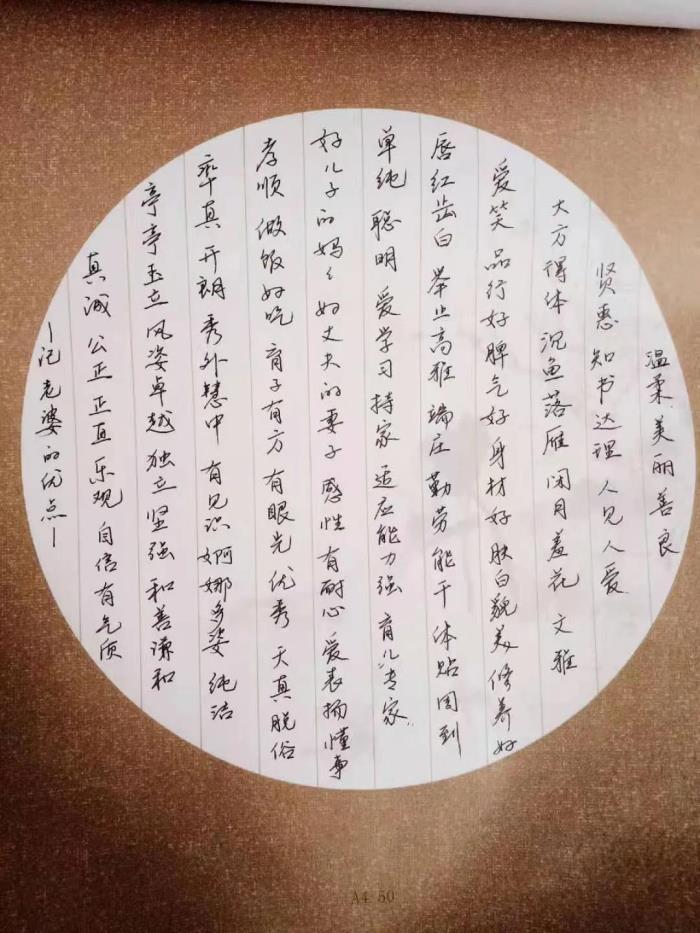 温柔 美丽善良
贤惠 知书达理 人见人爱
大方得体 沉鱼落雁 闭月羞花 文雅
爱笑 品行好 脾气好 身材好 肤白貌美 修养好
唇红齿白 举止高雅 端庄 勤劳能干 体贴周到
单纯 聪明 爱学习 持家 适应能力强 育儿专家
好儿子的妈妈 好丈夫的妻子 感性 有耐心 爱表扬 懂事
孝顺 做饭好吃 育子有方 有眼光 优秀 天真脱俗
率真 开朗 秀外慧中 有见识 婀娜多姿 纯洁
亭亭玉立 风姿卓越 独立坚强 和善谦和
真诚 公正 正直 乐观 自信 有气质
—记老婆的优点—
A4 50